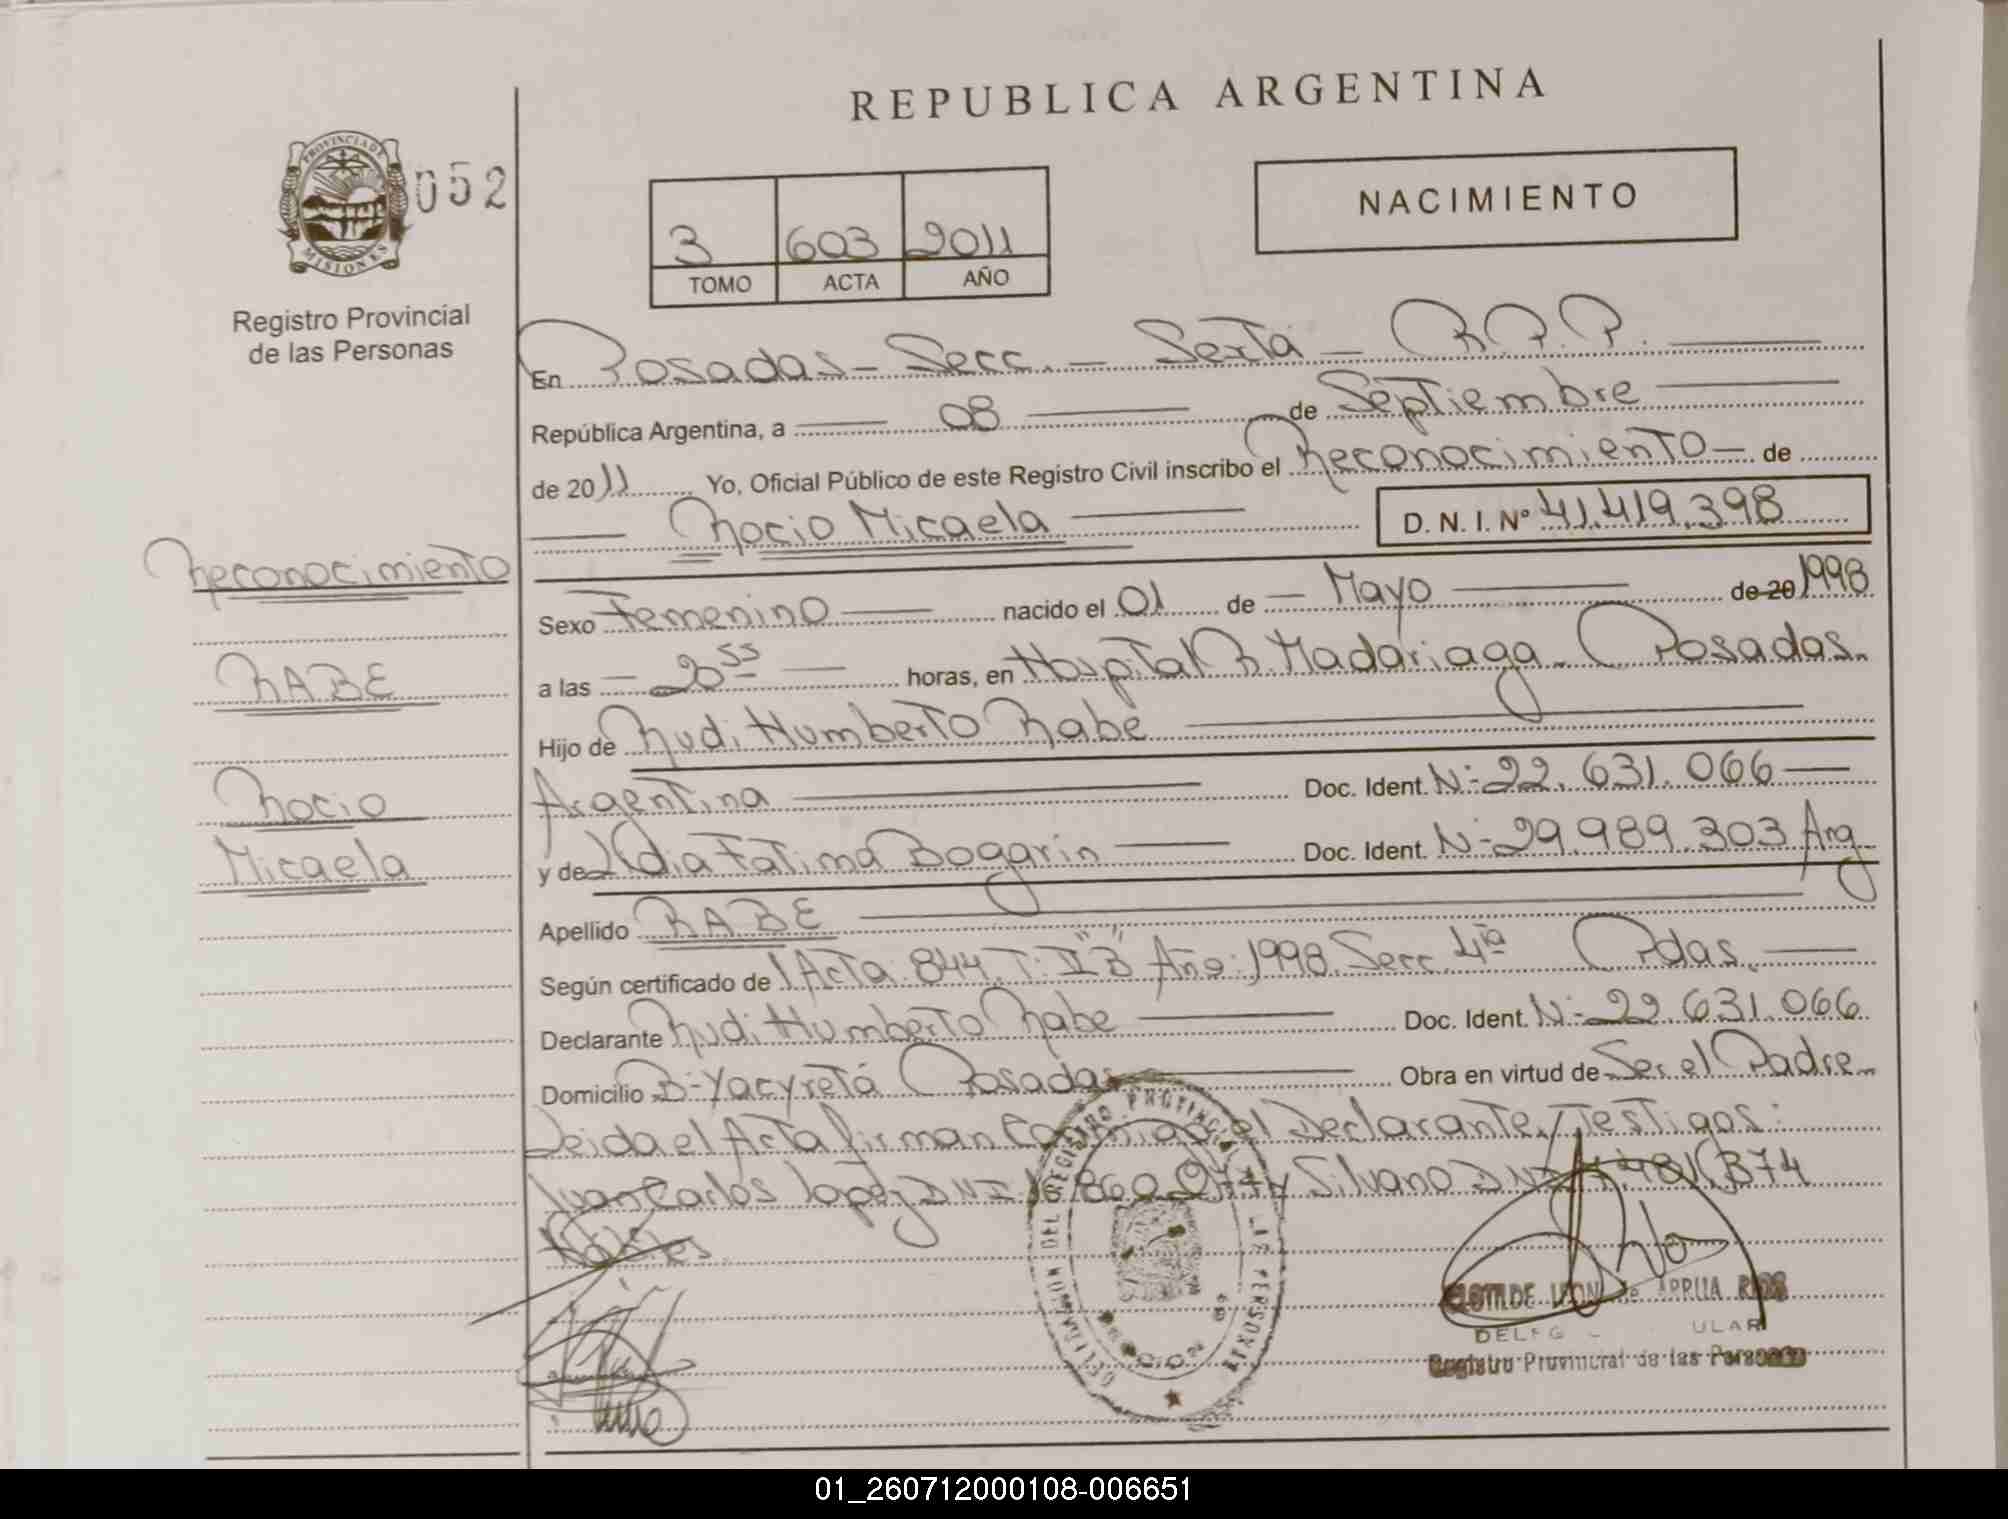 REPUBLICA ARGENTINA
PROVINCIA DE MISIONES
052
Registro Provincial
de las Personas
3 603 2011
TOMO ACTA AÑO
NACIMIENTO
En Posadas - Secc. - Sexta - R.P.P.
República Argentina, a 08 de Septiembre
de 2011 Yo, Oficial Público de este Registro Civil inscribo el Reconocimiento - de
Rocio Micaela D. N. I. Nº 41.419.398
Reconocimiento
RABE
Rocio
Micaela
Sexo Femenino nacido el 01 de - Mayo de 20 1998
a las - 20 55 horas, en Hospital R. Madariaga - Posadas.
Hijo de Rudi Humberto Rabe
Argentina Doc. Ident. N:22.631.066
y de Fatima Bogarin Doc. Ident. N:29.989.303 Arg
Apellido RABE
Según certificado de Acta 844. T: II "B" Año: 1998. Secc 4ta Pdas.
Declarante Rudi Humberto Rabe Doc. Ident. N:22.631.066
Domicilio B: Yacyretá Posadas Obra en virtud de Ser el Padre
Leida el Acta firman Conmigo el Declarante y Testigos:
Juan Carlos Lopez DNI Silvano DNI
Registro Provincial de las Personas
01_260712000108-006651